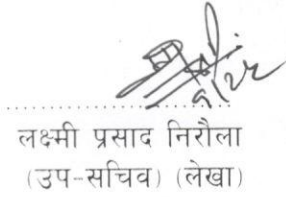 लक्ष्मी प्रसाद निरौला
(उप-सचिव) (लेखा)